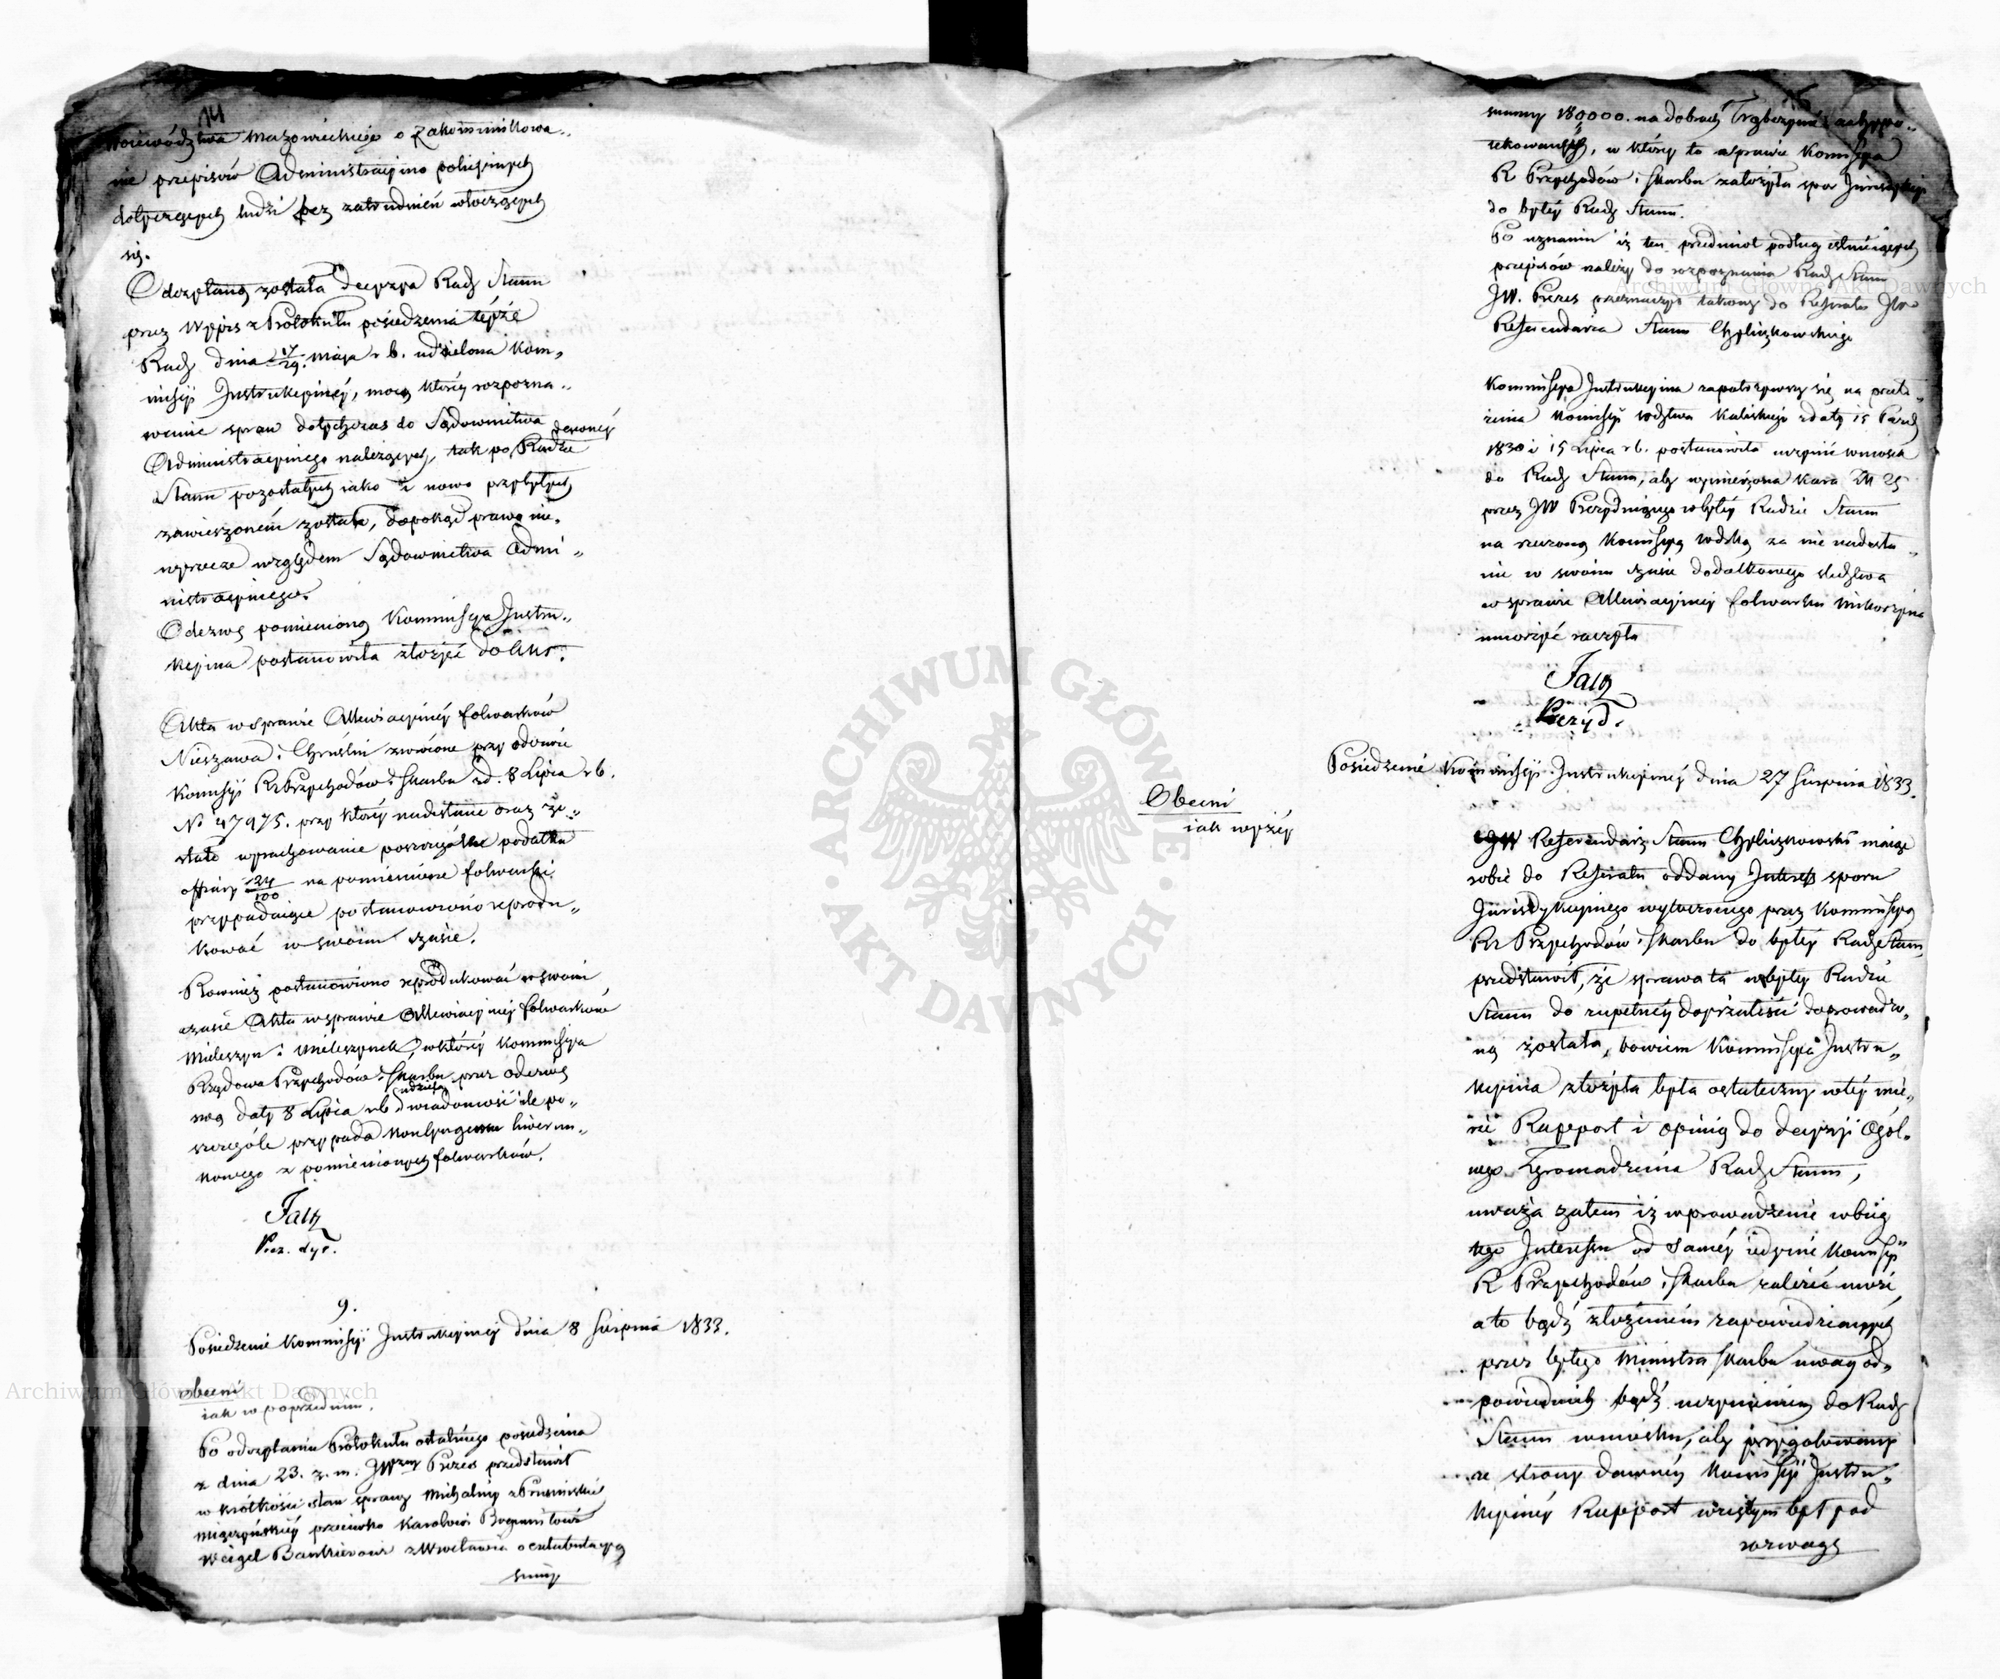 14
Woiewództwa Mazowieckiego o zakommunikowa„
nie przepisów Administracyino policyinych
dotyczących ludzi bez zatrudnień włóczących
się.
Odczytaną została decyzya Rady Stanu
przez Wypis z Protokułu posiedzenia teyże
Rady dnia 17/29 Maja r b. udzielona Kom„
missyi Instrukcyiney, mocą którey rozpozna„
wanie spraw dotychczas do Sądownictwa
Administracyinego należących, tak po dawney Radzie
Stanu pozostałych iako i nowo przybyłych
zawieszonem zostało, dopokąd prawo nie„
wyrzecze względem Sądownictwa Admi„
nistracyinego.
Odezwę pomienioną Kommissya Instru„
kcyina postanowiła złożyć do Akt.
Akta w sprawie Allewiacyiney folwarków
Nieszawa i Chruślin zwrócone przy odezwie
Komisyi R Przychodów i Skarbu z d. 8 Lipca r b.
No 47975. przy którey nadesłane oraz zo„
stało wyrachowanie poszczególne podatku
ofiary 24/100 na pomienione folwarki
przypadaiące postanowiono reprodu„
kować w swoim czasie.
Rownież postanowiono reprodukować w swoim
czasie Akta w sprawie Allewiacyiney folwarków
Mieleszyn i Mieleszynek, w którey Kommissya
Rządowa Przychodów i Skarbu przez odezwę
swą daty 8 Lipca r b udziela wiadomość ile po„
szczególe przypada Kontyngensu liwerun„
kowego z pomienionych folwarków.
Faltz
Prez. dyr.
9.
Posiedzenie Kommissyi Instrukcyiney dnia 8 Sierpnia 1833.
Obecni
iak w poprzednim.
Po odczytaniu Protokułu ostatniego posiedzenia
z dnia 23. z. m. JWżny Prezes przedstawił
w krótkości stan sprawy Michaliny z Prusimskich
Miączyńskiey przeciwko Karolowi Bogumiłowi
Weigel Bankierowi z Wrocławia o extabulacyą
summy
summy 180000. na dobrach zahypo„
tekowanych, w którey to sprawie Komissya
R Przychodów i Skarbu założyła spor Jurisdykcyi
do byłey Rady Stanu.
Po uznaniu iż ten przedmiot podług istnieiących
przepisów należy do rozpoznania Rady Stanu
JW. Prezes przeznaczył takowy do Referatu JW
Referendarza Stanu Chyliczkowskiego
Kommissya Instrukcyina zapatrzywszy się na przeło„
żenia Komissyi Wdztwa Kaliskiego z daty 15 Paźdz
1830 i 15 Lipca r b. postanowiła uczynić wniosek
do Rady Stanu, aby wymierzona kara Zł 25
przez JW Prezyduiącego w byłey Radzie Stanu
na rzeczoną Komissyą Wdzką za nie nadesła„
nie w swoim czasie dodatkowego śledztwa
w sprawie Allewiacyiney folwarku Mikorzyna
umorzyć raczyła
Faltz
Prezyd.
Posiedzenie Kommissyi Instrukcyiney dnia 27 Sierpnia 1833.
Obecni
iak wyżey
JW Referendarz Stanu Chyliczkowski maiąc
sobie do Referatu oddany Interess sporu
Jurisdykcyinego wytoczonego przez Kommissyą
R Przychodów i Skarbu do byłey Rady Stanu,
przedstawił, że sprawa ta w byłey Radzie
Stanu do zupełney doyrzałości doprowadzo„
ną została, bowiem Kommissya Instru„
kcyina złożyła była ostateczny w tey mie„
rze Rapport i opinią do decyzyi Ogól„
nego Zgromadzenia Rady Stanu,
uważa zatem iż wprowadzenie w bieg
tego Interessu od samey iedynie Komissyi
R Przychodów i Skarbu zależeć może,
a to bądź złożeniem zapowiedzianych
przez byłego Ministra Skarbu uwag od„
powiednich bądź uczynieniem do Rady
Stanu wniosku, aby przygotowany
ze strony dawney Komissyi Instru„
kcyiney Rapport wzięty był pod
rozwagę
Archiwum Główne Akt Dawnych
Archiwum Główne Akt Dawnych
ARCHIWUM GŁÓWNE · AKT DAWNYCH ·